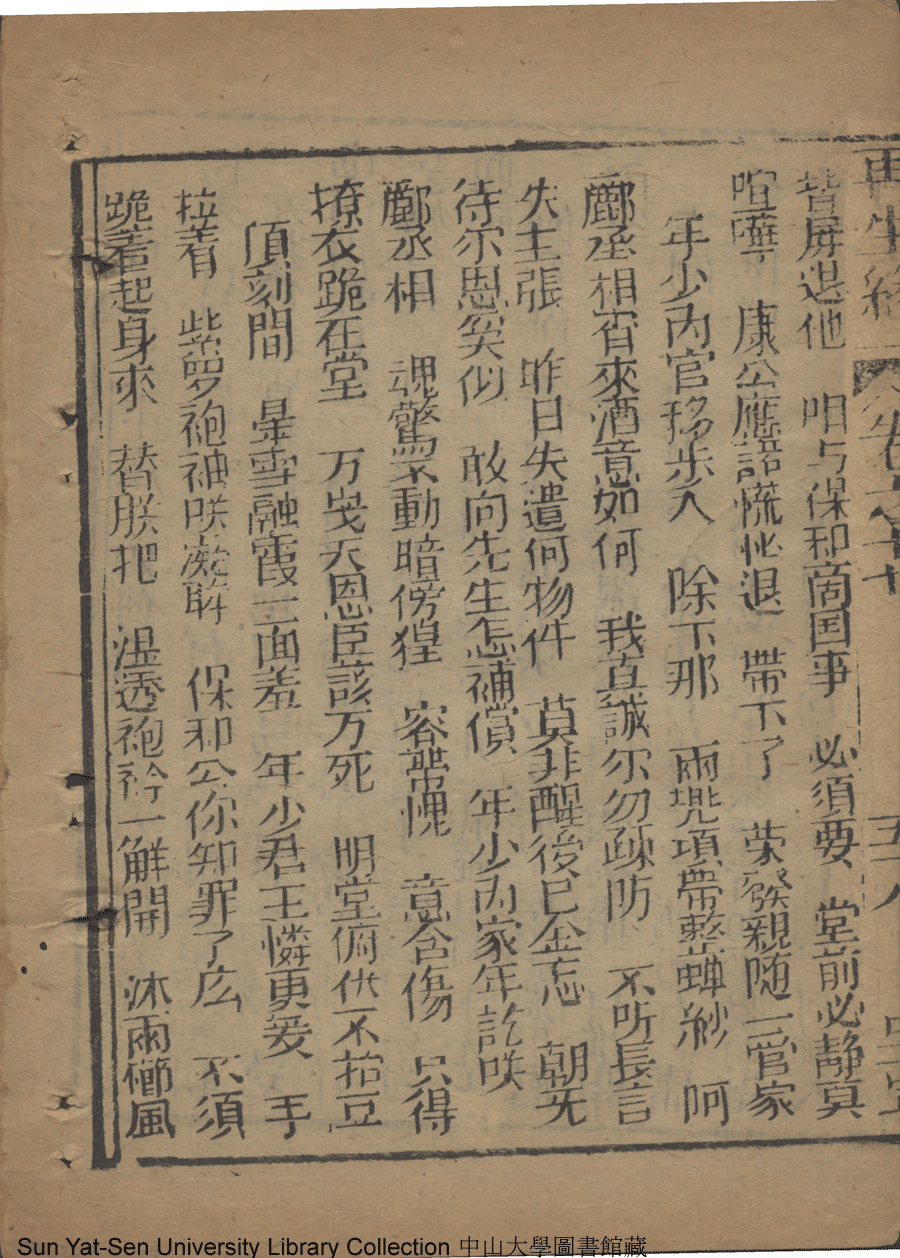 再生緣 卷之十 五八
皆屏退他 咱与保和商国事 必須要 堂前必静莫
喧嘩 康公應諾慌忙退 帶下了 荣發親随一管家
年少内官移步入 除下那 兩兠項帶整蝉紗 呵
酈丞相宵來酒意如何 我真誠尔勿疎防 不听長言
失主張 昨日失遺何物件 莫非醒後已全忘 朝光
待尔恩奚似 敢向先生怎補償 年少内家年訖咲
酈丞相 魂驚不動暗傍猩 容帶愧 意含傷 只得
撩衣跪在堂 万歲天恩臣該万死 明堂俯伏不抬豆
頃刻間 暈雪融霞二面羞 年少君王憐更爱 手
拉着 紫罗袍袖咲凝眸 保和公你知罪了庅 不須
跪着起身來 替朕把 湿透袍衿一解開 沐雨櫛風
Sun Yat-Sen University Library Collection 中山大學圖書館藏